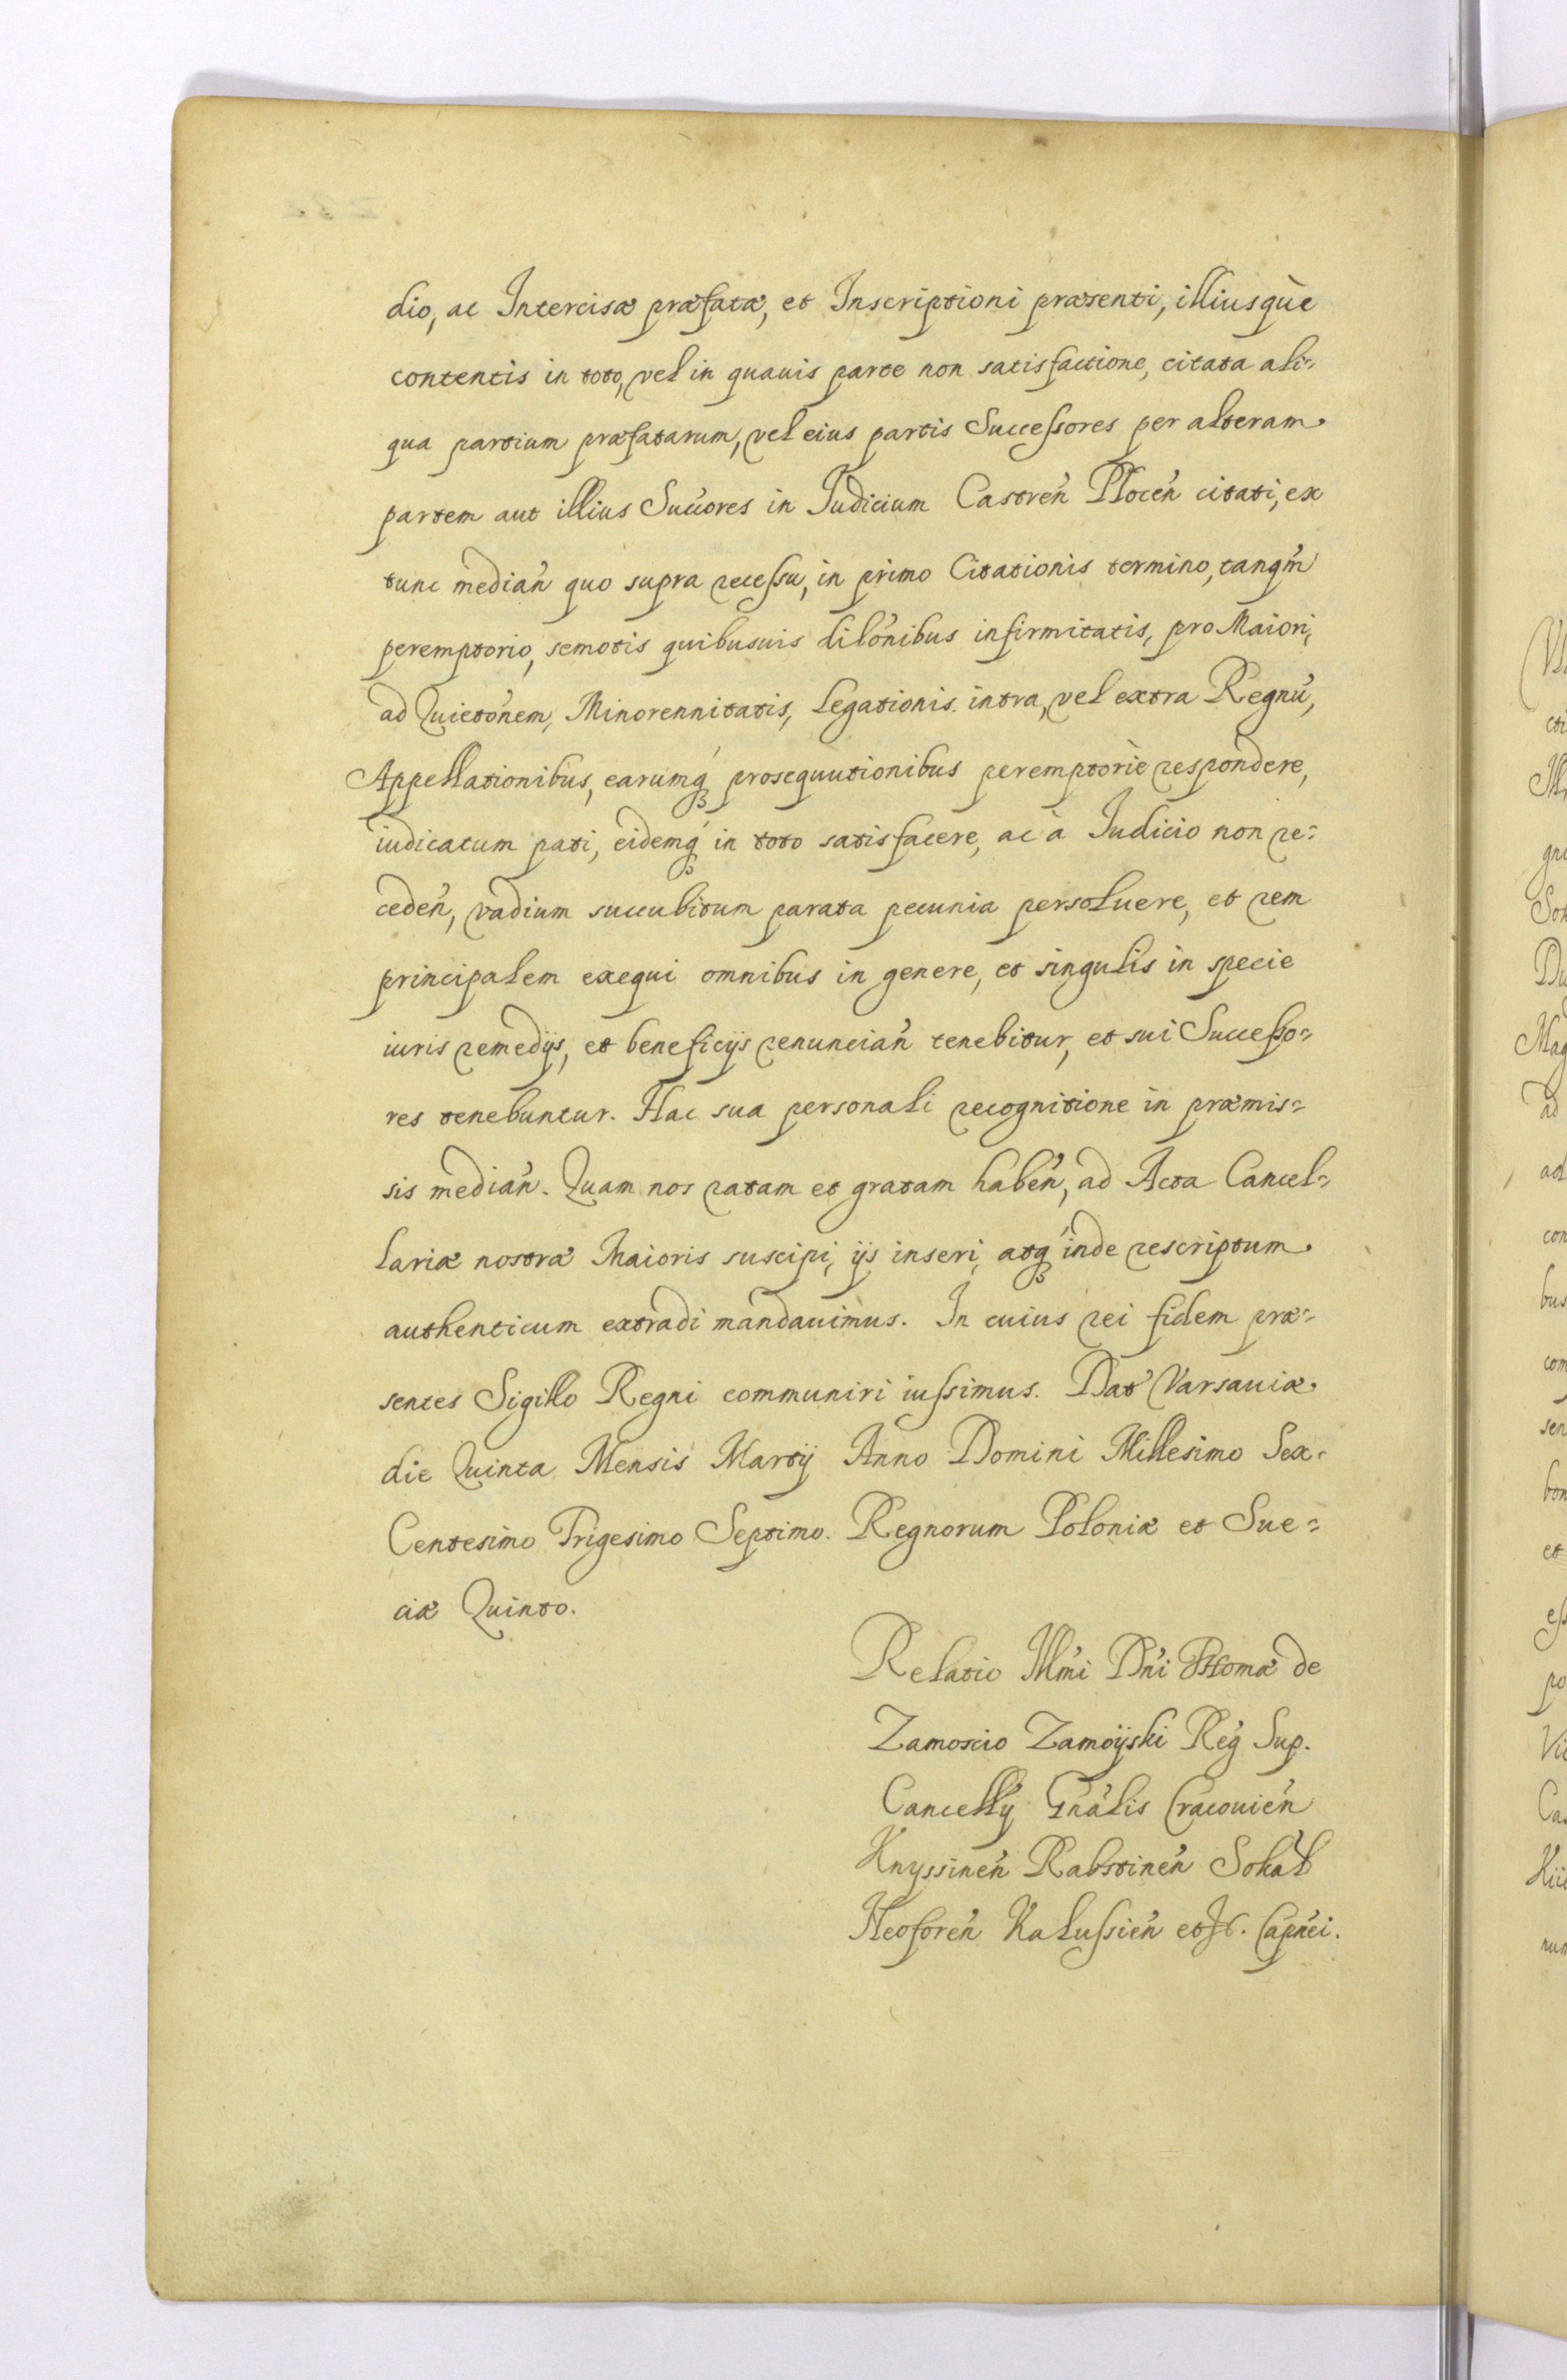 dio, ac Intercisæ præfatæ, et Inscriptioni præsenti, illiusquè
contentis in toto, vel in quauis parte non satisfactione, citata ali=
qua partium præfatarum, vel eius partis Successores per alteram
partem aut illius Succ̃ores in Judicium Castreñ Ploceñ citati, ex
tunc mediañ quo supra recessu, in primo Citationis termino, tanqm̃
peremptorio, semotis quibusuis dilõnibus infirmitatis, pro Maiori,
ad Quietõnem, Minorennitatis, Legationis intra, vel extra Regnũ,
Appellationibus, earumq́ꝫ prosequutionibus peremptoriè respondere,
iudicatum pati, eidemq́ꝫ in toto satisfacere, ac à Judicio non re=
cedeñ, vadium succubitum parata pecunia persoluere, et rem
principalem exequi omnibus in genere, et singulis in specie
iuris remedijs, et beneficijs renunciañ tenebitur, et sui Successo=
res tenebuntur. Hac sua personali recognitione in præmis=
sis mediañ. Quam nos ratam et gratam habeñ, ad Acta Cancel=
lariæ nostræ Maioris suscipi, ijs inseri, atq́ꝫ inde rescriptum
authenticum extradi mandauimus. In cuius rei fidem præ=
sentes Sigillo Regni communiri iussimus. Dat̃ Varsauiæ
die Quinta Mensis Martij Anno Domini Millesimo Sex=
Centesimo Trigesimo Septimo. Regnorum Poloniæ et Sue=
ciæ Quinto.
Relatio Illm̃i Dñi Thomæ de
Zamoscio Zamoÿski Reg̃ Sup.
Cancellÿ Gñalis Cracouieñ
Knyssineñ Rabstineñ Sokal̃
Neoforeñ Kalussieñ et Capñei.